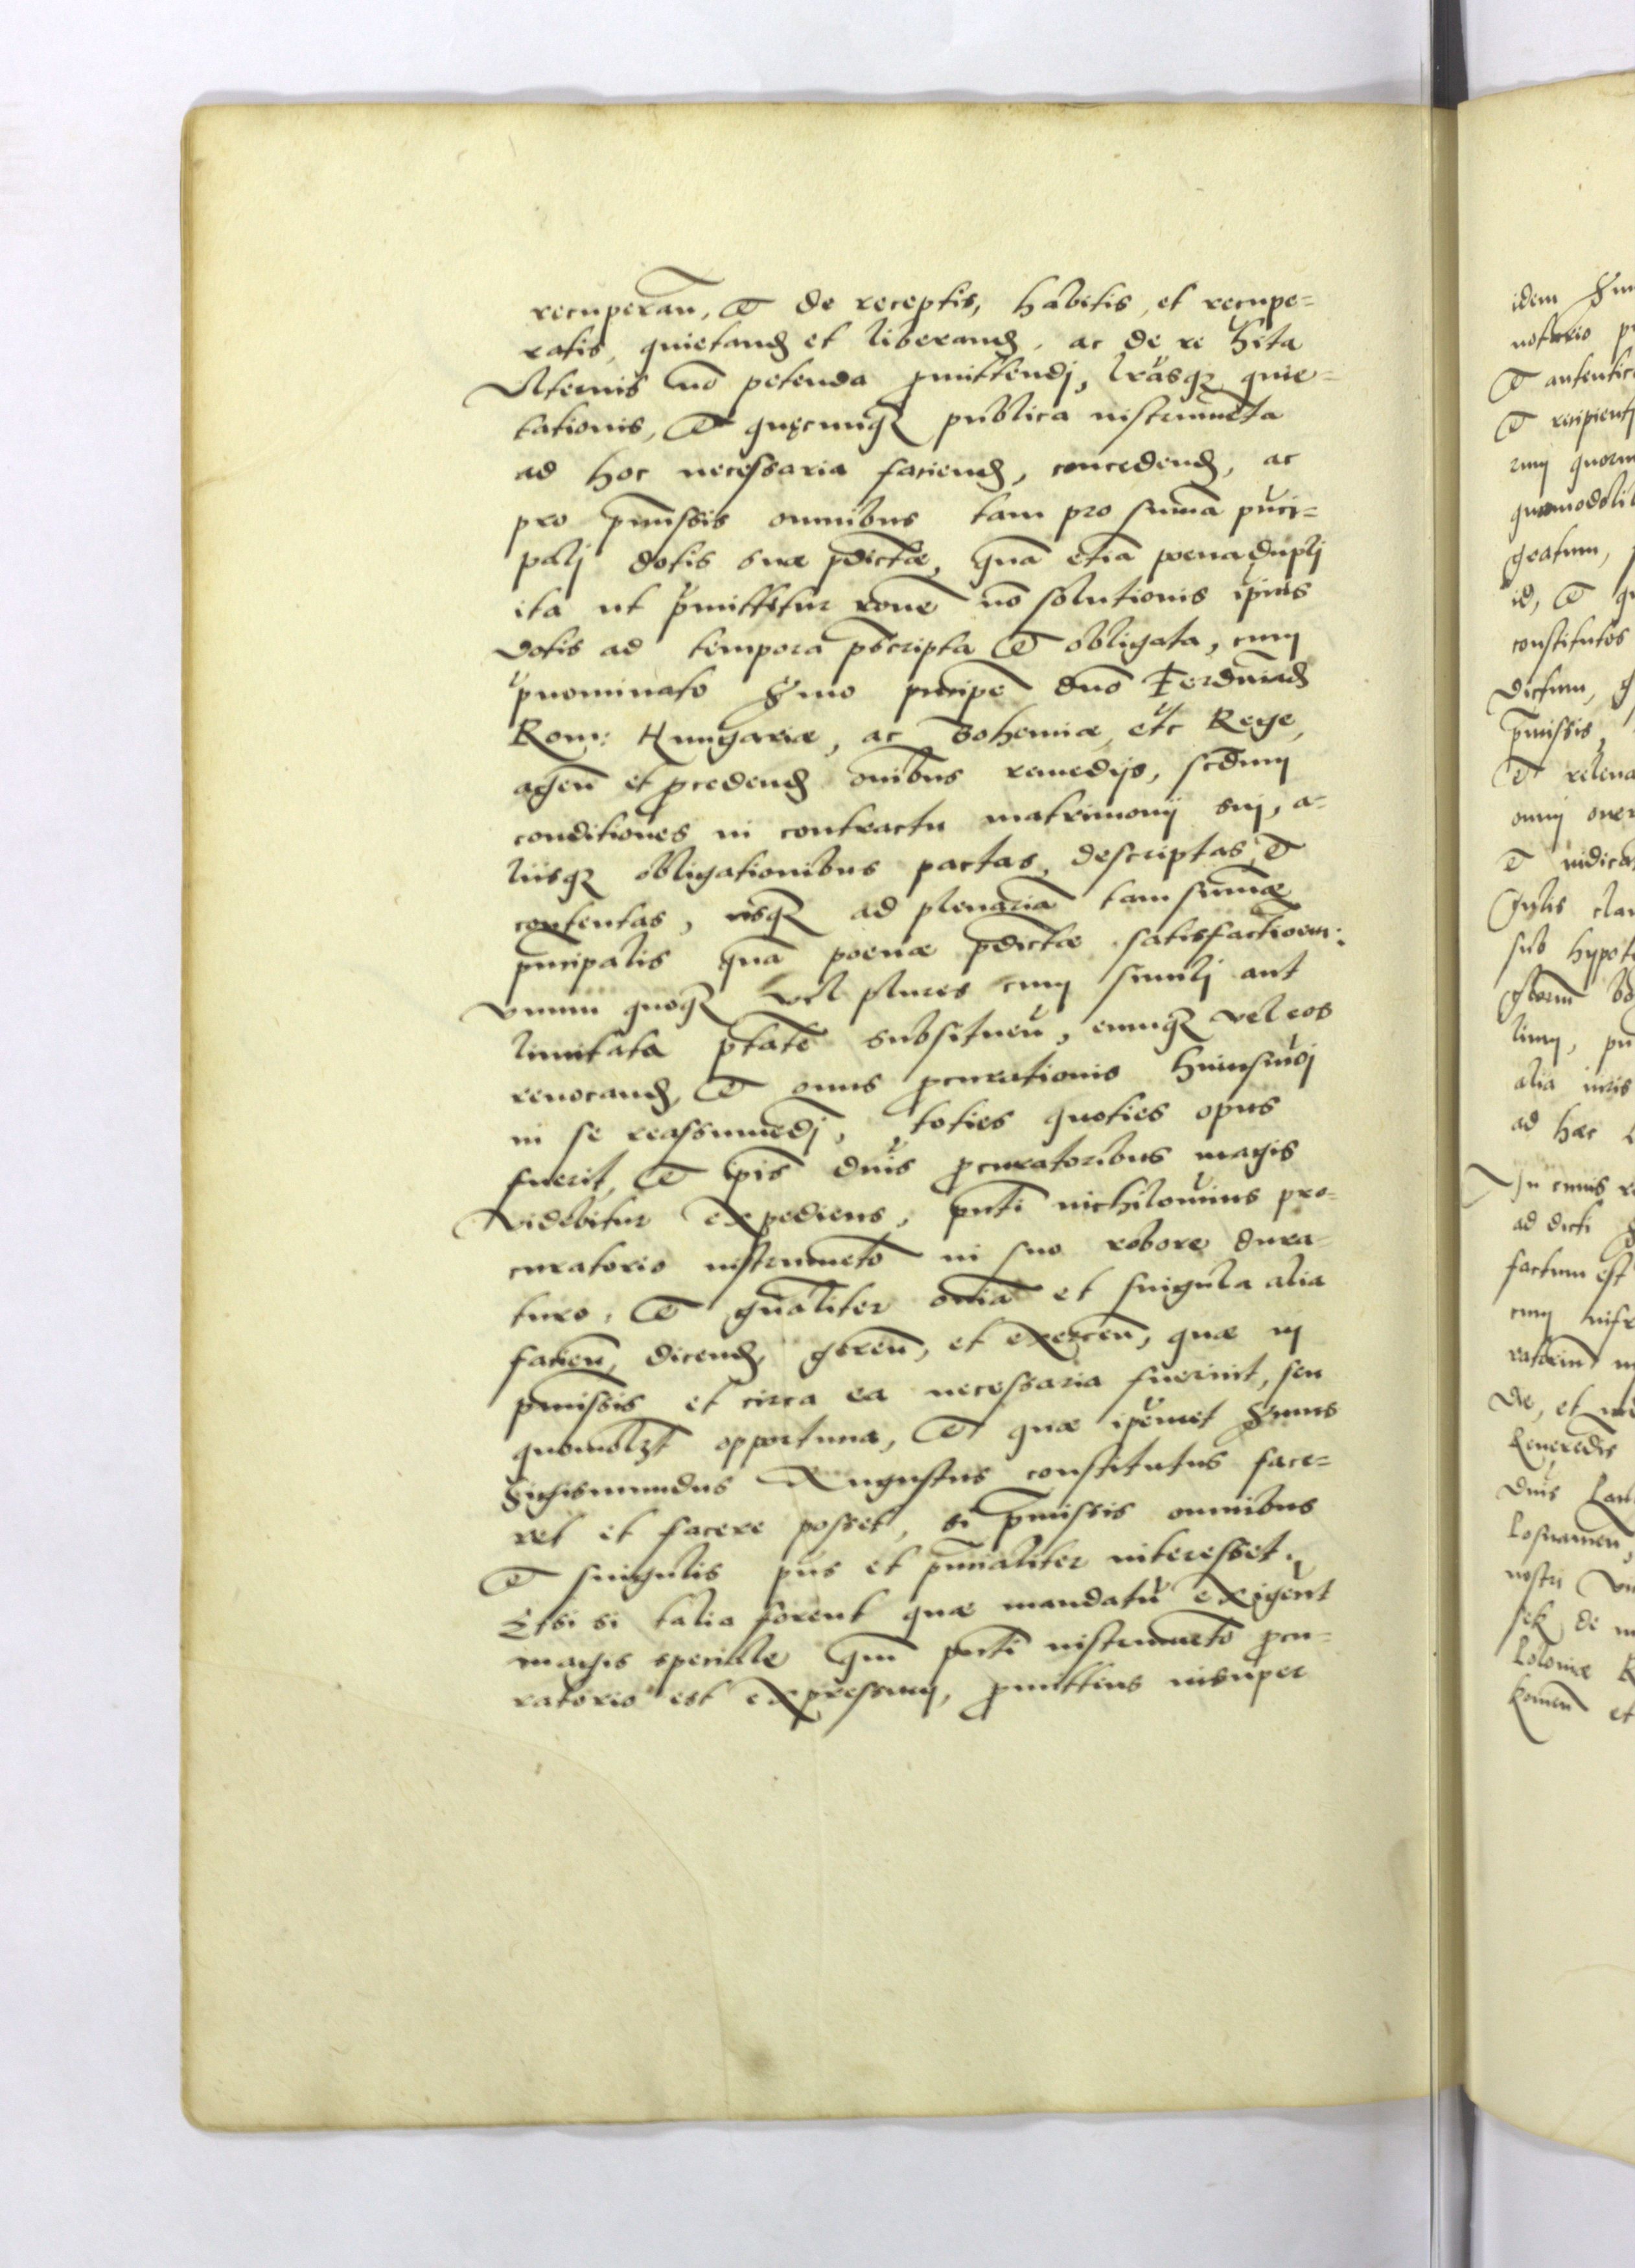 recuperan̄, et de receptis, habitis, et recupe=
ratis, quietand et liberand, ac de re h̃ita
Ulterius nō petenda ꝓmittendj, lr̃asq̃ quie=
tationis, Et quęcunq̃ publica instrumẽta
ad hoc necessaria faciend, concedend, ac
pro p̄missis omnibus tam pro summa p̃nci=
palj dotis suæ p̄dictæ, quā etiā poena duplj
ita ut p̃mittitur rone nō solutionis ip̃ius
dotis ad tempora p̄scripta et obligata, cum
p̃nominato S̃mo principe dnō Ferdinād
Rom: Hungariæ, ac Bohemiæ, etc Rege,
agen̄ et ꝓcedend oībus remedijs, scdum
conditiones in contractu matrimonij suj, a=
liisq̃ obligationibus pactas, descriptas, et
contentas, usq̃ ad plenariā tam summæ
principalis quā poenæ p̄dictæ satisfactioem:
Unum quoq̃ vel plures cum similj aut
limitata p̄tate substituen̄, eumq̃ vel eos
reuocand, et onus ꝓcurationis huiusmõj
in se reassumēdj, toties quoties opus
fuerit, et ip̄is dñis ꝓcuratoribus magis
videbitur expediens, pñti nichilominus pro=
curatorio instrumēto in suo robore dura=
turo, Et gñaliter om̄ia et singula alia
facien̄, dicend, geren̄, et exercen̄, quæ in
p̄missis et circa ea necessaria fuerint, seu
quomōlꝫt opportuna, Et quæ ip̃emet S̃mus
Sigismundus Augustus constitutus face=
ret et facere posset, si p̄missis omnibus
et singulis p̃ns et p̄sonaliter interesset.
Etsi si talia forent quæ mandatū exigerēt
magis speciale quā pñti instrumēto ꝓcu=
ratorio est expressum, ꝓmittens insuper